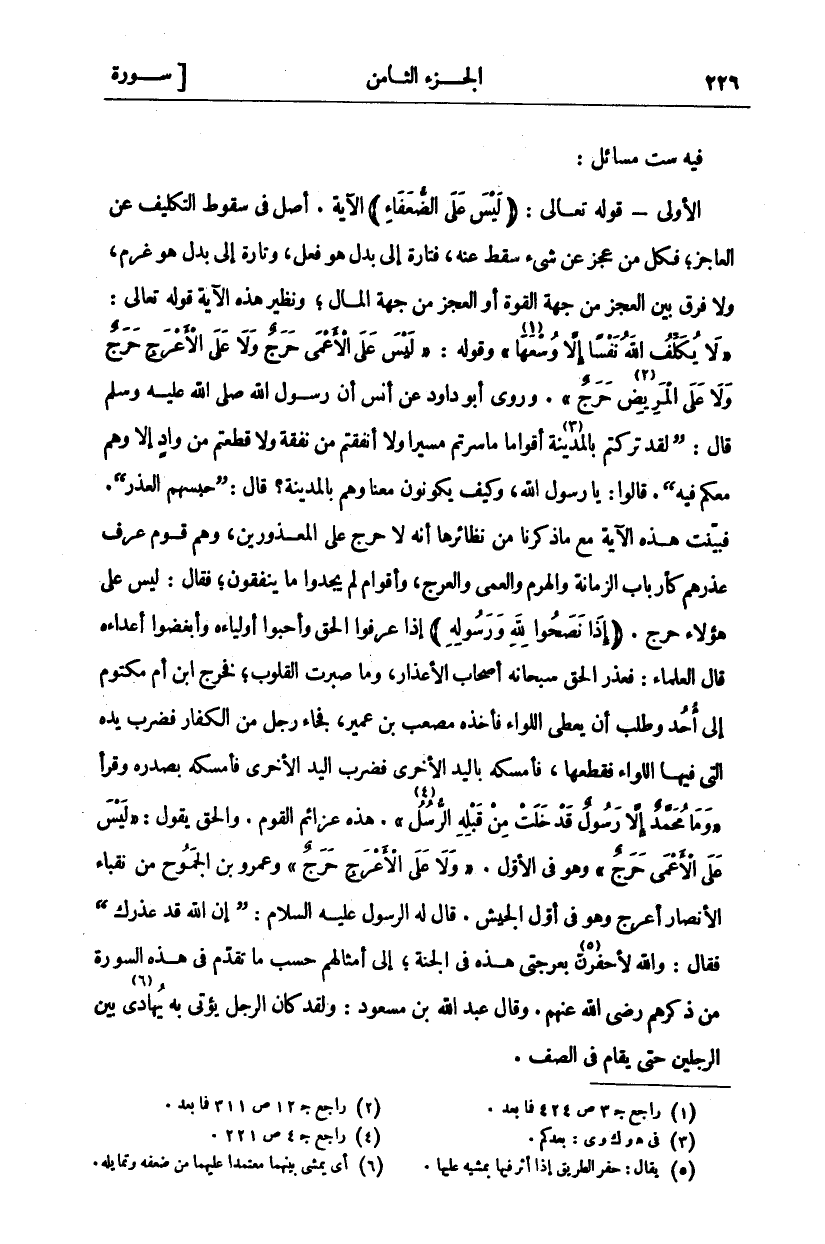 ٢٢٦ الجـزء الثامن [ سـورة
فيه ست مسائل :
الأولى — قوله تعـالى : ﴿ لَيْسَ عَلَى الضُّعَفَاءِ ﴾ الآية . أصل فى سقوط التكليف عن
العاجز؛ فكل من عجز عن شىء سقط عنه، فتارة إلى بدل هو فعل، وتارة إلى بدل هو غرم،
ولا فرق بين العجز من جهة القوة أو العجز من جهة المـال ؛ ونظير هذه الآية قوله تعالى :
«لَا يُكَلِّفُ اللهُ نَفْسًا إِلَّا وُسْعَهَا (١)» وقوله : « لَيْسَ عَلَى الْأَعْمَى حَرَجٌ وَلَا عَلَى الْأَعْرَجِ حَرَجٌ
وَلَا عَلَى الْمَرِيضِ حَرَجٌ (٢)» . وروى أبو داود عن أنس أن رسـول الله صلى الله عليـه وسلم
قال : ” لقد تركتم بالمدينة (٣) أقواما ماسرتم مسيرا ولا أنفقتم من نفقة ولا قطعتم من وادٍ إلا وهم
معكم فيه“ . قالوا : يا رسول الله، وكيف يكونون معنا وهم بالمدينة؟ قال : ”حبسهم العذر“.
فبيّنت هـذه الآية مع ماذكرنا من نظائرها أنه لا حرج على المعـذورين، وهم قـوم عرف
عذرهم كأرباب الزمانة والهرم والعمى والعرج، وأقوام لم يجدوا ما ينفقون؛ فقال : ليس على
هؤلاء حرج . ﴿ إِذَا نَصَحُوا لِلهِ وَرَسُولِهِ ﴾ إذا عرفوا الحق وأحبوا أولياءه وأبغضوا أعداءه
قال العلماء : فعذر الحق سبحانه أصحاب الأعذار، وما صبرت القلوب؛ فخرج ابن أم مكتوم
إلى أُحُد وطلب أن يعطى اللواء فأخذه مصعب بن عمير، فجاء رجل من الكفار فضرب يده
التى فيهـا اللواء فقطعها ، فأمسكه باليد الأخرى فضرب اليد الأخرى فأمسكه بصدره وقرأ
«وَمَا مُحَمَّدٌ إِلَّا رَسُولٌ قَدْ خَلَتْ مِنْ قَبْلِهِ الرُّسُلُ (٤)» . هذه عزائم القوم . والحق يقول : «لَيْسَ
عَلَى الْأَعْمَى حَرَجٌ» وهو فى الأوّل . « وَلَا عَلَى الْأَعْرَجِ حَرَجٌ » وعمرو بن الجَمُوح من نقباء
الأنصار أعرج وهو فى أوّل الجيش . قال له الرسول عليـه السلام : ” إن الله قد عذرك “
فقال : والله لأحفرنّ (٥) بعرجتى هـذه فى الجنة ؛ إلى أمثالهم حسب ما تقدّم فى هـذه السورة
من ذكرهم رضى الله عنهم . وقال عبد الله بن مسعود : ولقد كان الرجل يؤتى به يُهادَى (٦) بين
الرجلين حتى يقام فى الصف .
(١) راجع جـ ٣ ص ٤٢٤ فما بعد . (٢) راجع جـ ١٢ ص ٣١١ فما بعد .
(٣) فى هـ وك وى : بعدكم . (٤) راجع جـ ٤ ص ٢٢١ .
(٥) يقال : حفر الطريق إذا أثر فيها بمشيه عليها . (٦) أى يمشى بينهما معتمدا عليهما من ضعفه وتمايله .